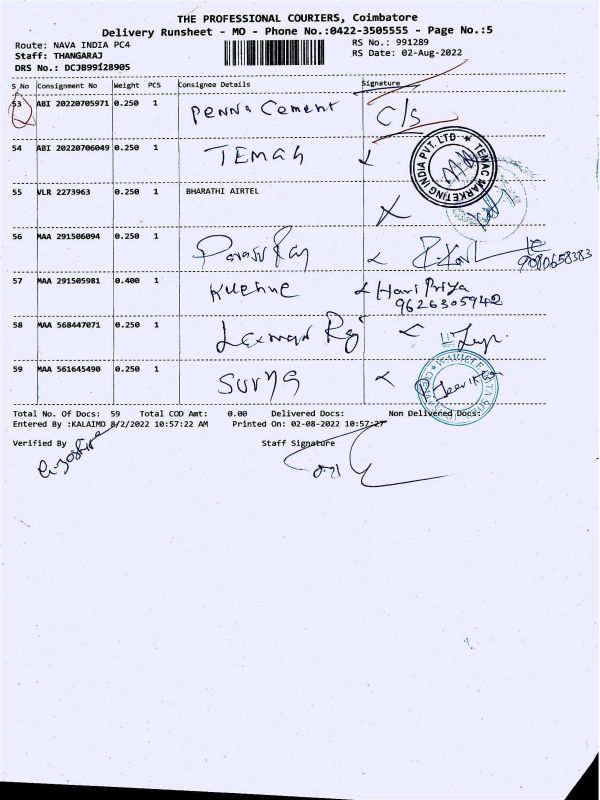 THE PROFESSIONAL COURIERS, Coimbatore
Delivery Runsheet - MO - Phone No.:0422-3505555 - Page No.:5
Route: NAVA INDIA PC4
RS No.: 991289
Staff: THANGARAJ
RS Date: 02-Aug-2022
DRS No.: DCJB99128905
S No Consignment No Weight PCS Consignee Details Signature
53 ABI 20220705971 0.250 1 Penna Cement C/S
54 ABI 20220706049 0.250 1 TEMAH
TEMAC MARKETING INDIA PVT. LTD
55 VLR 2273963 0.250 1 BHARATHI AIRTEL
56 MAA 291506094 0.250 1
9080658383
57 MAA 291505981 0.400 1 Kuehne Hari Priya
9626305942
58 MAA 568447071 0.250 1 Laxman
59 MAA 561645490 0.250 1 Surya
Total No. Of Docs: 59 Total COD Amt: 0.00 Delivered Docs: Non Delivered Docs:
Entered By :KALAIMO 8/2/2022 10:57:22 AM Printed On: 02-08-2022 10:57:27
Verified By Staff Signature